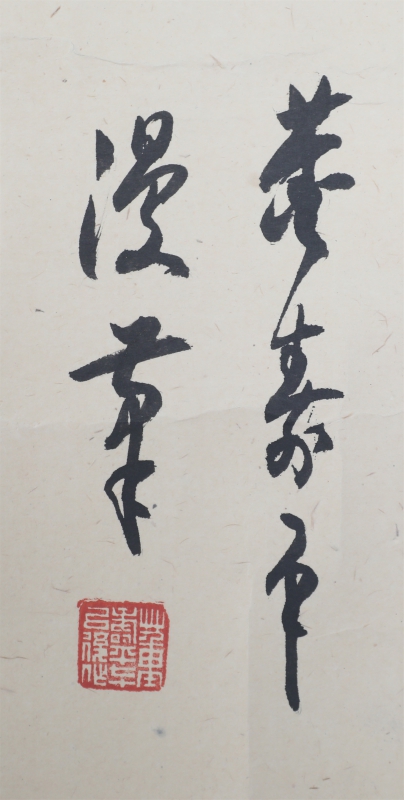 董壽平
漫筆